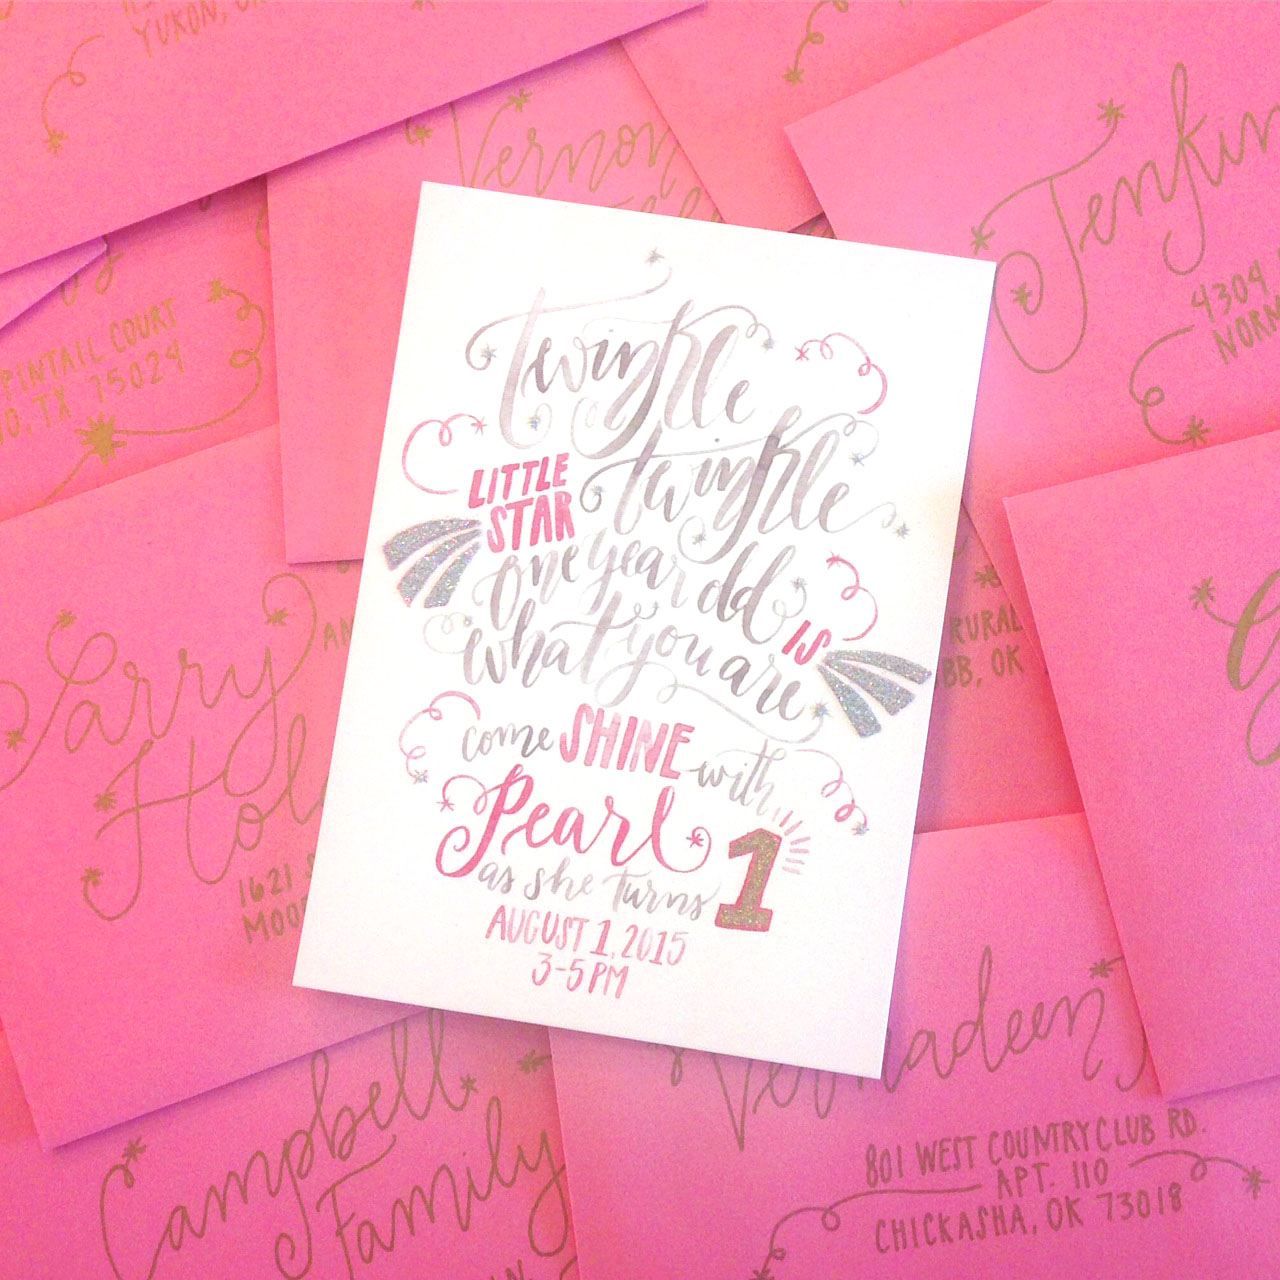 YUKON,
Vernon
Jenkin
4304
NORM
PINTAIL COURT
TX 75024
twinkle
twinkle
LITTLE
STAR
one year old
IS
what you are
come SHINE with
Pearl
as she turns
1
AUGUST 1, 2015
3-5PM
RURAL
BB, OK
Larry
Hol
1621
MOOR
Campbell
Family
Vernadeen
801 WEST COUNTRY CLUB RD.
APT. 110
CHICKASHA, OK 73018